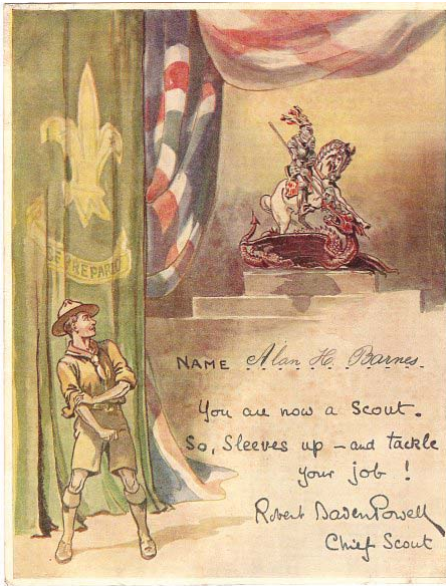 BE PREPARED
NAME Alan H. Barnes.
You are now a Scout.
So, Sleeves up – and tackle
your job !
Robert Baden Powell
Chief Scout